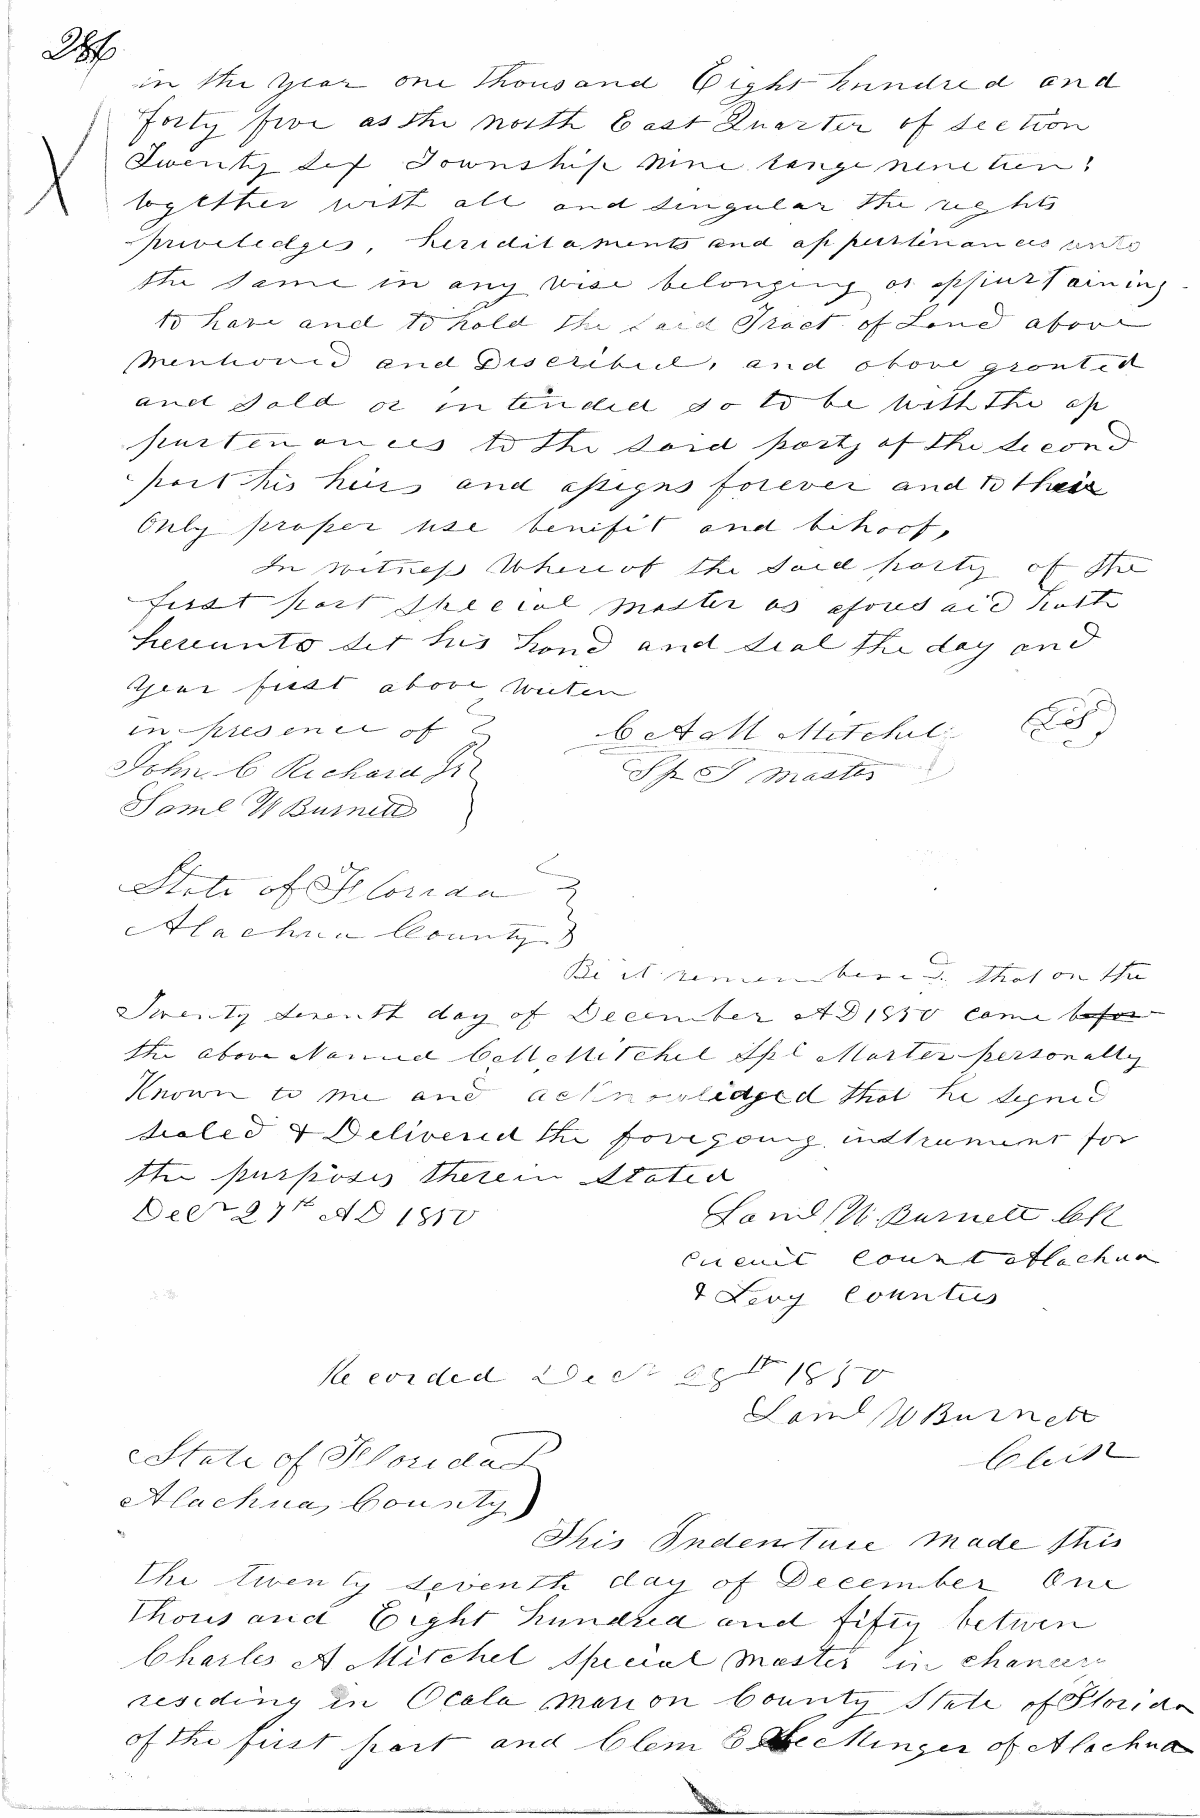 286
in the year one thousand Eight hundred and
forty five as the north East Quarter of section
Twenty Six Township nine range nineteen;
together with all and singular the rights
priviledges, hereditaments and appurtinances unto
the same in any wise belonging or appurtaining
to have and to hold the said Tract of Land above
mentioned and Discribed, and above granted
and sold or intended so to be with the ap
purtenances to the said party of the second
part his heirs and assigns forever and to their
Only proper use benifit and behoof,
In witness Whereof the said party of the
first part special master as aforesaid hath
hereunto set his hand and seal the day and
year first above writen
in presence of
John C Richard Jr
Saml W Burnett
C A M Mitchel
Sp J master
State of Florida
Alachua County
Be it remembered, that on the
Twenty seventh day of December AD 1850 came befor
the above Named C M Mitchel Spl Master personally
Known to me and acknowlidged that he signed
sealed & Delivered the foregoing instrument for
the purposes therein stated
Decr 27th AD 1850
Saml W. Burnett Clk
circuit court Alachua
& Levy Counties
Recorded Decr 28th 1850
Saml W Burnett
Clerk
State of Florida
Alachua, County
This Indenture made this
the twenty seventh day of December One
thousand Eight hundred and fifty betwen
Charles A Mitchel special master in chancery
residing in Ocala marion County State of Florida
of the first part and Clem of Alachua